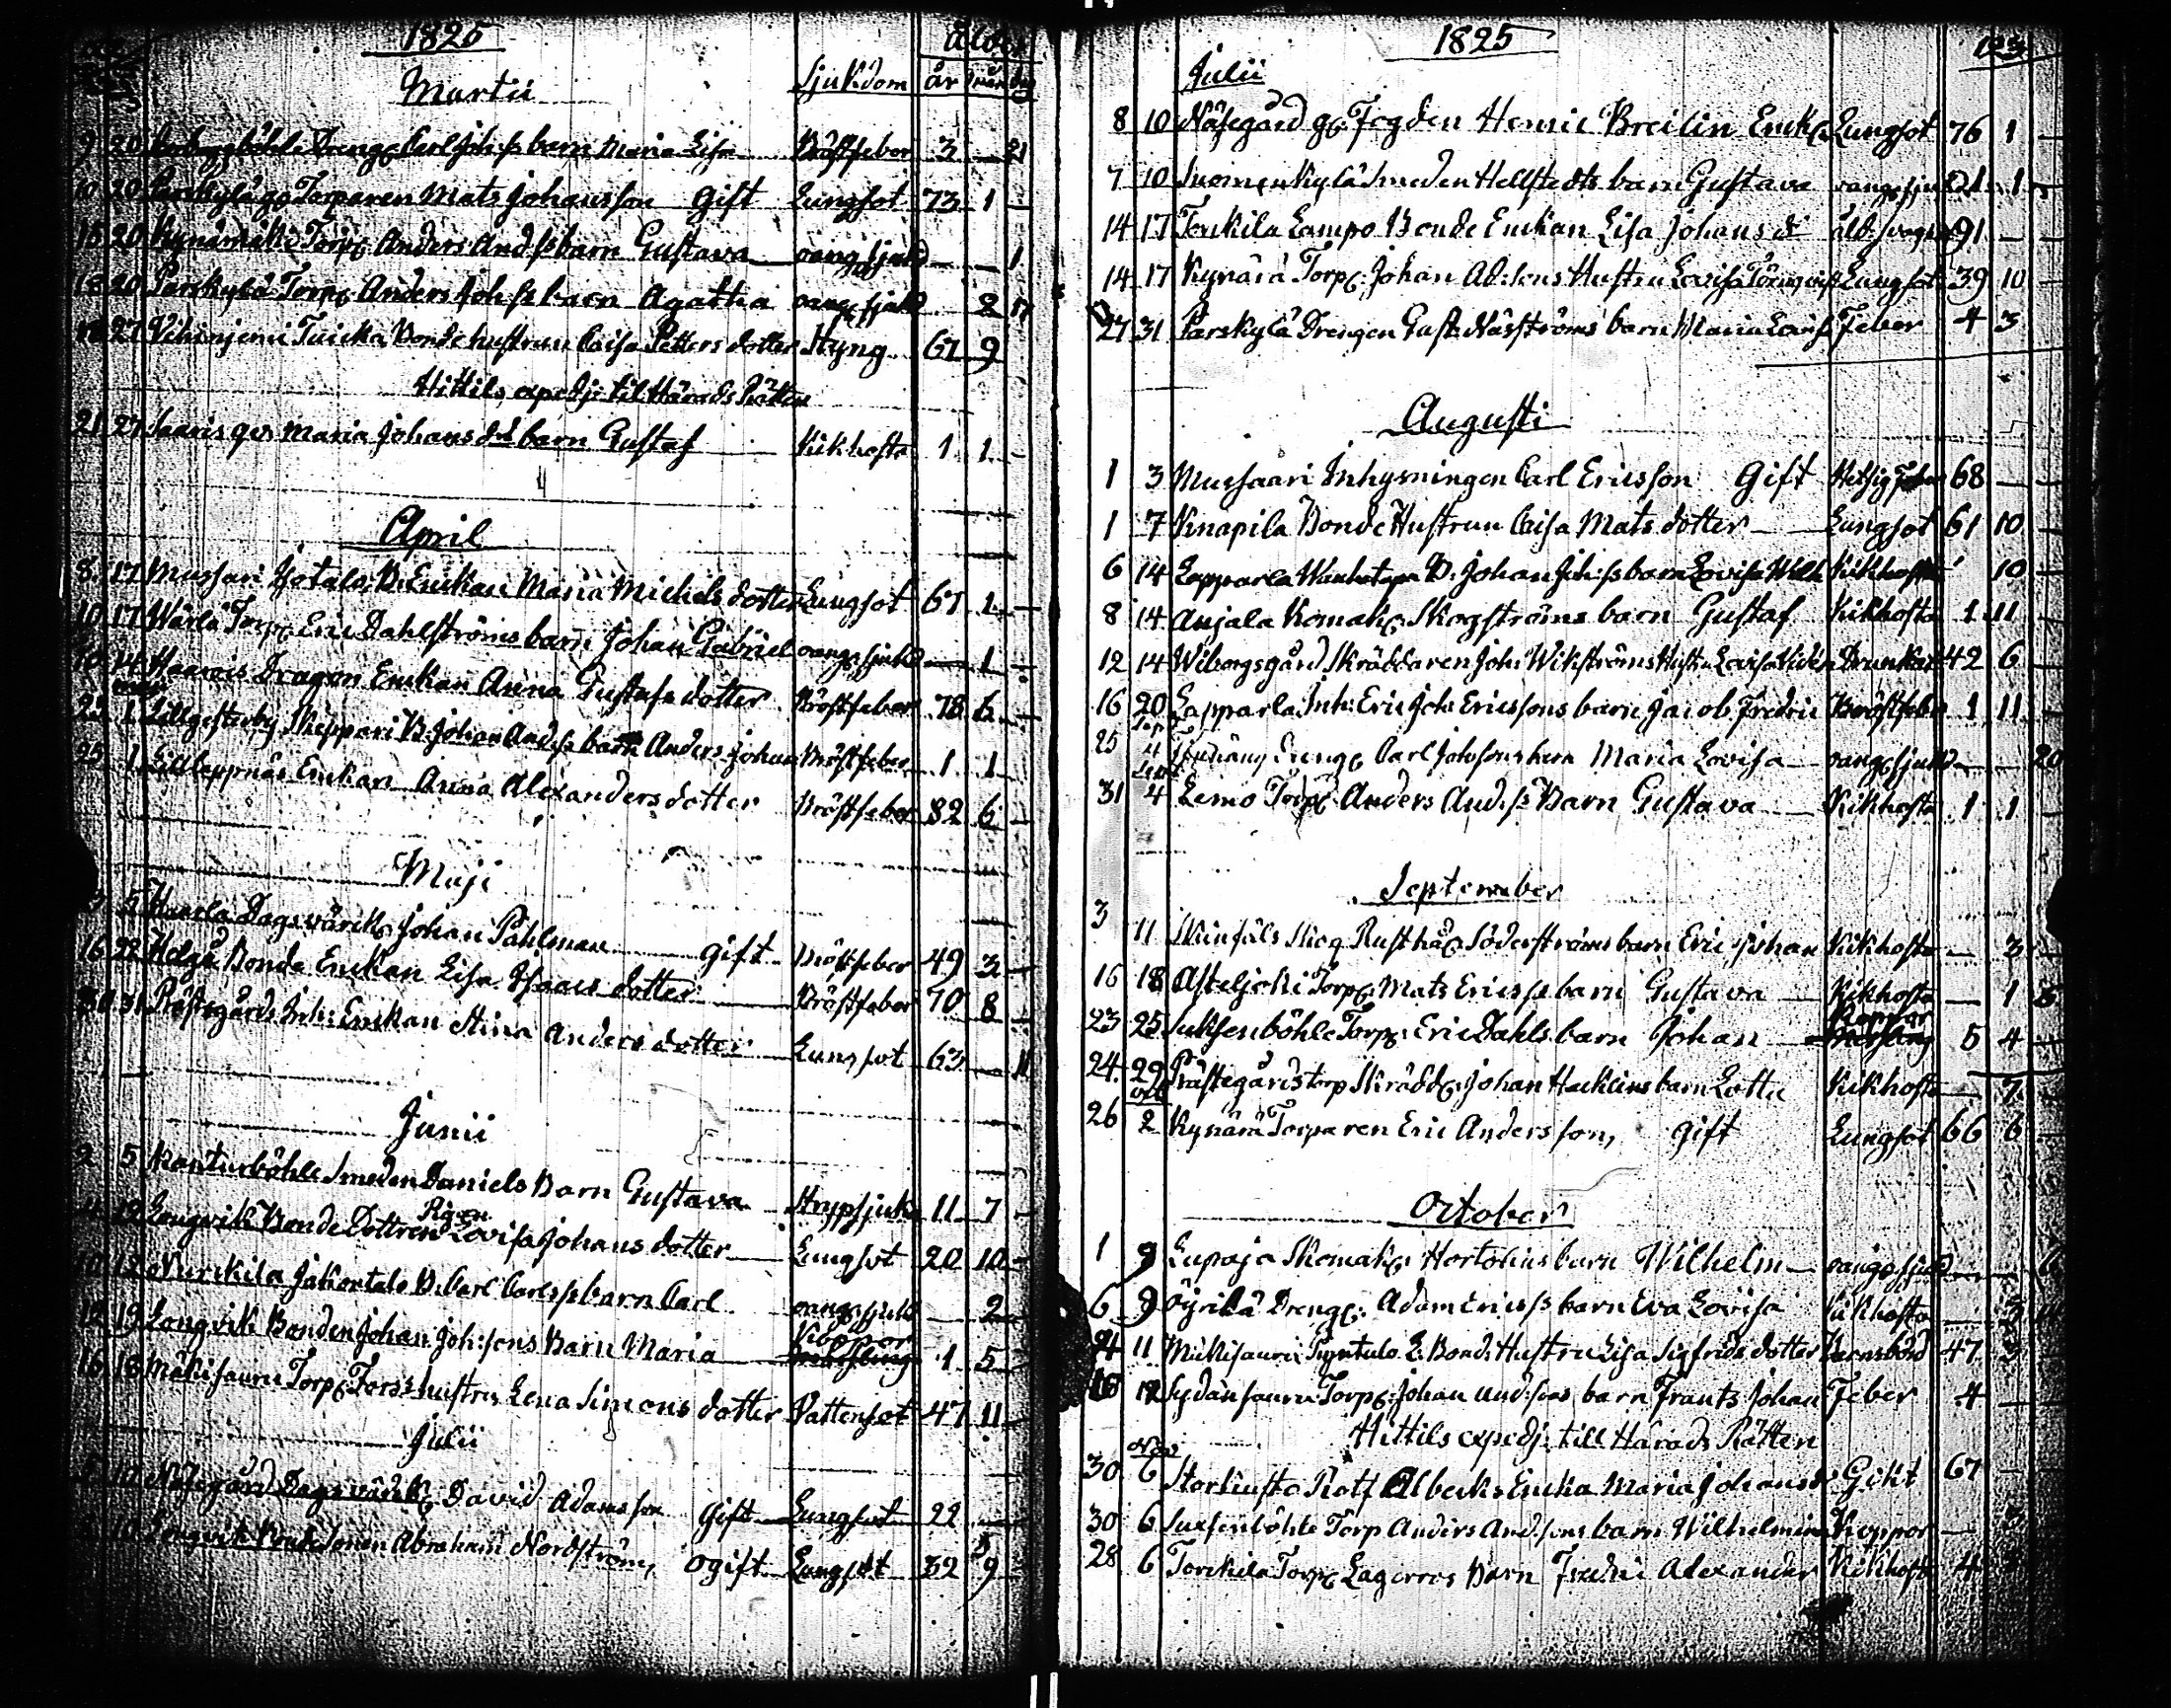 1825
Ålder
Martii Sjukdom år mån dag
9 20 Drengs Carl Joh:ss barn Maria Lisa Bröstfeber 3 — 21
10 20 Pärskylä gg Torparen Mats Johansson Gift Lungsot 73 1 —
15 20 Kynämäki Torp: Anders And:ss barn Gustava oang: sjukd — — 1
18 20 Pärskylä Torp: Anders Joh:ss barn Agatha oang: sjukd 2 17
18 27 Vihiniemi Tuicka Bonde hustrun Caisa Petters dotter Styng 61 9
Hittils expedj: til Härads Rätten
21 27 Saaris qvs Maria Johans dr barn Gustaf Kikhosta 1 1 —
April
8 17 Mussari Jotala B: Enckan Maria Michels dotter Lungsot 67 1 —
10 17 Wärlä Torp: Eric Dahlströms barn Johan Gabriel oang: sjukd — 1 —
Haarois Dragon Enckan Anna Gustafs dotter Bröstfeber 78 6 —
23 1 Lillgesterby Skeppari B: Johan And:ss barn Anders Johan Bröstfeber 1 1
25 1 Lilleppnäs Enckan Anna Alexanders dotter Bröstfeber 82 6 —
Maji
5 Haarla Dagsvärck: Johan Påhlman Gift Bröstfeber 49 3 —
16 22 Helgå Bonde Enckan Lisa Isaacs dotter Bröstfeber 70 8 —
30 31 Prästgårds Inh: Enckan Stina Anders dotter Lungsot 63 — 11
Junii
2 5 Kanturböhle Smeden Daniels Barn Gustava Strypsjuka 11 7 —
Pigan
12 Longvik Bonde Dottren Lovisa Johans dotter Lungsot 20 10 —
10 12 Nurckila Jakontalo B: Carl Carls:ss barn Carl oang: sjukd — 2
Koppor
12 19 Longvik Bonden Johan Joh:sons Barn Maria 1 5 —
16 18 Mäkisauru Torp: Forss hustru Lena Simons dotter Vattensot 47 11 —
Julii
10 Näsegård Dagsvärck: David Adamsson Gift Lungsot 22 —
10 Longvik Bonde Sonen Abraham Nordström, ogift Lungsot 32 9
1825
123
Julii
8 10 Näsegård gg: Fogden Henric Breilin Enck: Lungsot 76 1 —
7 10 Suomenkylä Smeden Hellstedts barn Gustava oang: sjukd 1 1
14 17 Torckila Lampo Bonde Enckan Lisa Johans dr åld: svaghet 91 — —
14 17 Kynärä Torp: Johan Ad:sons Hustru Lovisa Törnqvist Lungsot 39 10 —
27 31 Pärskylä Drengen Gust: Näsströms barn Maria Lovisa Feber 4 3
Augusti
1 3 Mussaari Inhysningen Carl Ericsson Gift Hetsig Feber 68 — —
1 7 Knapila Bonde Hustrun Caisa Mats dotter — Lungsot 61 10 —
6 14 Lapparla Wanhatapa B: Johan Joh:ss barn Lovisa Wilh Kikhosta 10 —
8 14 Anjala Skomak: Skogströms barn Gustaf Kikhosta 1 11 —
12 14 Wiborgsgård Skräddaren Joh: Wikströms Hustru Lovisa Drunknat 42 6 —
16 20 Lapparla Inh: Eric Joh: Ericssons barn Jacob Fredric Bröstfeber 1 11
Sept
25 4 Drengs Carl Johssons barn Maria Lovisa — oang: sjukd — — 20
31 4 Lemo Torp: Anders And:ss Barn Gustava — Kikhosta 1 1
September
3 11 Skinfals Skog Rusthål: Söderströms barn Eric Johan Kikhosta — 3 —
16 18 Asteljoki Torp: Mats Ericss barn Gustava — Kikhosta — 1 5
Koppor
23 25 Suksenböhle Torp: Eric Dahls barn Johan — 5 4 —
24 29 Prästegårdstorp Skrädd: Johan Hacklins barn Lotta Kikhosta — 7 —
Oct
26 2 Kynärä Torparen Eric Andersson, gift Lungsot 66 6 —
October
1 9 Lupaja Skomak: Hortolins barn Wilhelm — oang: sjukd — — 6
6 9 Öyrilä Dreng: Adam Ericss barn Eva Lovisa Kikhosta — 3
11 Mickisauru Pyntalo L: Bond: Hustru Lisa Sigfrids dotter Barnsbörd 47 3 —
12 Sydänsauru Torp: Johan And:sons barn Frants Johan Feber 4 —
Hittils expedj: till Härads Rätten
Nov
30 6 Rotf Albecks Encka Maria Johans dr Gikt 67
30 6 Suxsenböhle Torp Anders And:sons barn Wilhelmina Koppor — 3
28 6 Torckila Torp: Lagerroos Barn Fredric Alexander Kikhosta 4